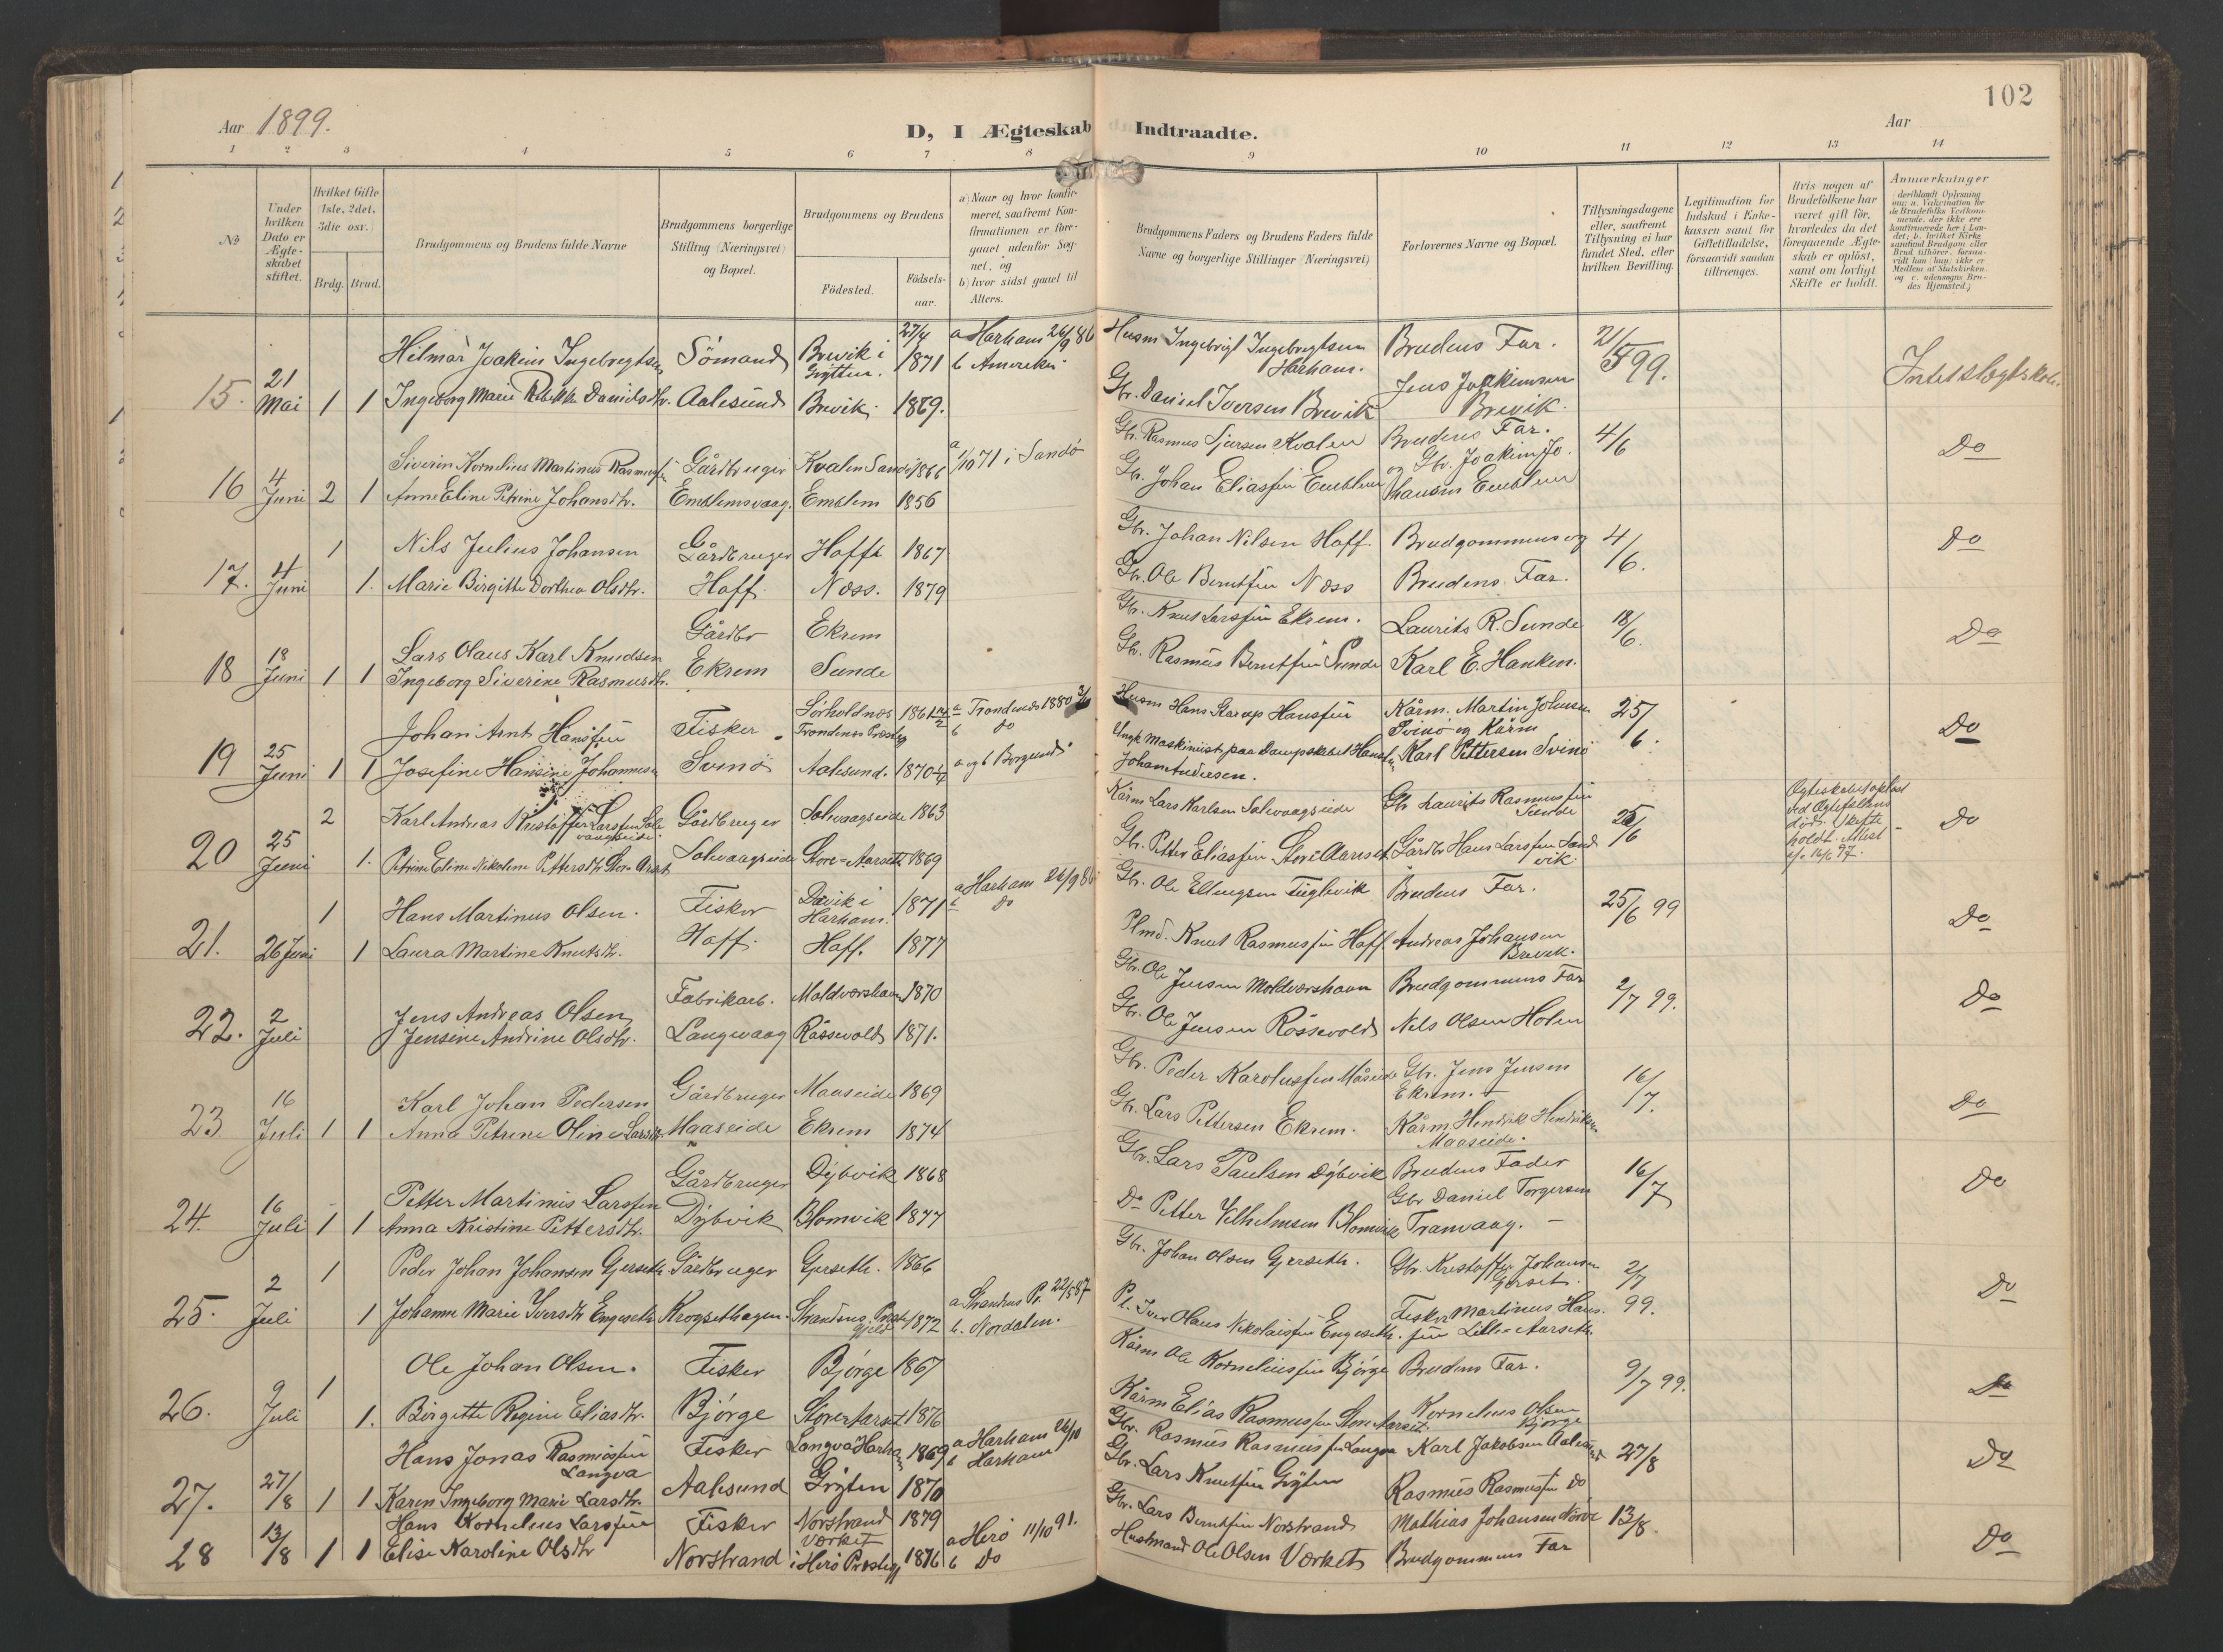 102
Aar 1899.
D, I Ægteskab Indtraadte.
Aar
1 2 3 4 5 6 7 8 9 10 11 12 13 14
No
Under hvilken Dato er Ægteskabet stiftet.
Hvilket Gifte (1ste, 2det, 3die osv.
Brdg. Brud.
Brudgommens og Brudens fulde Navne
Brudgommens borgerlige Stilling (Næringsvei) og Bopæl.
Brudgommens og Brudens
Födested.
Födselsaar.
a) Naar og hvor konfirmeret, saafremt Konfirmationen er foregaaet udenfor Sognet, og
b) hvor sidst gaaet til Alters.
Brudgommens Faders og Brudens Faders fulde Navne og borgerlige Stillinger (Næringsvei)
Forlovernes Navne og Bopæl.
Tillysningsdagene eller, saafremt Tillysning ei har fundet Sted, efter hvilken Bevilling.
Legitimation for Indskud i Enkekassen samt for Giftetilladelse, forsaavidt saadan tiltrænges.
Hvis nogen af Brudefolkene har været gift för, hvorledes da det foregaaende Ægteskab er oplöst, samt om lovligt Skifte er holdt.
Anmærkninger
15. 21 Mai 1 1
Hilmar Joakim Ingebregtsen Sömand Brevik i Grytten. 27/4 1871 a Harham 26/9 86 b Amerika
Husm Ingebrigt Ingebregtsen Harham. Brudens Far. 21/5 99.
Ingeborg Marie Rebekka Danielsdtr. Aalesund Brevik. 1869.
Gbr. Daniel Iversen Brevik Jens Joakimsen Brevik.
16 4 Juni 2 1
Siverin Kornelius Martinus Rasmussen Gårdbruger Kvalen Sandö 1866 a 1/10 71 i Sandö
Gbr. Rasmus Sjursen Kvalen Brudens Far. 4/6 Do
Anne Eline Petrine Johansdtr. Emblemsvaag. Emblem 1856
Gbr. Johan Eliassen Emblem og Gbr. Joakim Johansen Emblem
17. 4 Juni 1 1.
Nils Julius Johansen Gårdbruger Hoff 1867
Gbr. Johan Nilsen Hoff. Brudgommens og 4/6. Do
Marie Birgitte Dorthea Olsdtr. Hoff. Næss. 1879
Gbr. Ole Berntsen Næss Brudens Far.
18 18 Juni 1 1
Lars Olaus Karl Knudsen Gårdbr Ekrem
Gbr. Knut Larssen Ekrem. Laurits R. Sunde 18/6. Do
Ingeborg Siverine Rasmusdtr. Ekrem Sunde
Gbr. Rasmus Berntsen Sunde Karl E. Hanken.
19 25 Juni 1 1
Johan Arnt Hansen Fisker Trondenes Præstg 1861 a Trondenes 1880 b do
Husm Hans Hansen Kårm. Martin Johnsen Svinö og Kårm 25/6. Do
Josefine Hansine Johannesen Svinö Aalesund. 1870 a og b Borgund
Ungk Maskinist paa Dampskibet Johan Andresen. Karl Pettersen Svinö
20 25 Juni 2 1.
Karl Andreas Kristoffer Larssen Solevaagseide Gårdbruger Solevaagseide 1863
Kårm Lars Karlsen Solevaagseide Gbr Laurits Rasmussen Sunde 25/6 Do
Ægteskabet oplöst ved Ægtefællens död. Skifte holdt. Attest af 16/6 97.
Petrine Eline Nikoline Pettersdtr Store Årset Solevaagseide Store-Aarseth 1869
Gbr. Petter Eliassen Store Aarset Gårdbr Hans Larssen Sandvik.
21. 26 Juni 1 1
Hans Martinus Olsen. Fisker i Harham. 1871 a Harham 26/9 86 b Do
Gbr. Ole Ellingsen Fuglevik Brudens Far. 25/6 99 Do
Laura Martine Knutsdtr. Hoff. Hoff. 1877
Plmd. Knut Rasmussen Hoff Andreas Johansen Brevik.
22. 2 Juli
Jens Andreas Olsen Fabrikarb. Moldværshavn 1870
Gbr. Ole Jensen Moldværshavn Brudgommens Far 2/7 99. Do
Jensine Andrine Olsdtr. Langevaag Rössevold 1871.
Gbr. Ole Jensen Rössevold Nels Olsen Holen
23 16 Juli 1 1
Karl Johan Pedersen Gårdbruger Maaseide 1869
Gbr. Peder Karolussen Måseide Gbr. Jens Jensen Ekrem. 16/7. Do
Anna Petrine Oline Larsdtr. Maaseide Ekrem 1874
Gbr. Lars Pettersen Ekrem. Kårm Hendrik Hendriksen Maaseide.
24. 16 Juli 1 1
Petter Martinus Larssen Gårdbruger Dybvik 1868
Gbr. Lars Paulsen Dybvik Brudens Fader 16/7 Do
Anna Kristine Pettersdtr. Dybvik Blomvik 1877
Do Petter Vilhelmsen Blomvik Gbr Daniel Torgersen Tranvaag.
25. 2 Juli 1 1
Peder Johan Johansen Gjerseth. Gårdbruger Gjerseth. 1866
Gbr. Johan Olsen Gjerseth. Gbr. Kristoffer Johansen Gjerset. 2/7 99. Do
Johanne Marie Iversdtr Engeseth Krogsethagen. Strandens Præstegjeld 1872 a Strandens Pr. 22/5 87 b. Nordalen.
Pl. Iver Olaus Nikolaissen Engeseth. Fisker Martinus Hanssen Litle-Aarseth.
26. 9 Juli 1 1.
Ole Johan Olsen. Fisker Björge 1867
Kårm Ole Korneliussen Björge Brudens Far. 9/7 99. Do
Birgitte Regine Eliasdtr. Björge Store Aarset 1876
Kårm Elias Rasmussen Store Aarset. Kornelius Olsen Björge
27. 27/8 1 1
Hans Jonas Rasmussen Langva Fisker Langva Harham 1869 a Harham 26/10 b Harham
Gbr. Rasmus Rasmussen Langva Karl Jakobsen Aalesund 27/8 Do
Karen Ingeborg Marie Larsdtr. Aalesund Gryten 1870
Gbr. Lars Knutsen Gryten Rasmus Rasmussen Do
28 13/8 1 1
Hans Kornelius Larssen Fisker Norstrand 1879
Gbr. Lars Berntsen Norstrand Mathias Johansen Nörve 13/8. Do
Elise Karoline Olsdtr Norstrand Værket i Herö Præstegj 1876 a Herö 11/10 91. b Do
Husmand Ole Olsen Værket Brudgommens Far